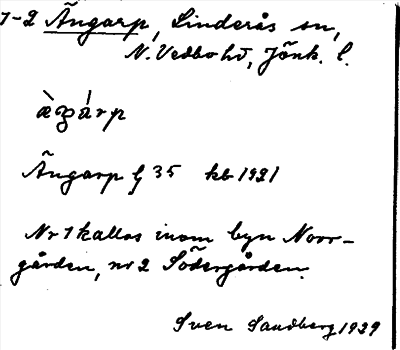 1-2 Ängarp, Linderås sn,
N. Vedbo hd, Jönk. l.
Ängarp 35 kb 1921
Nr 1 kallas inom byn Norr-
gården, nr 2 Södergården.
Sven Sandberg 1929